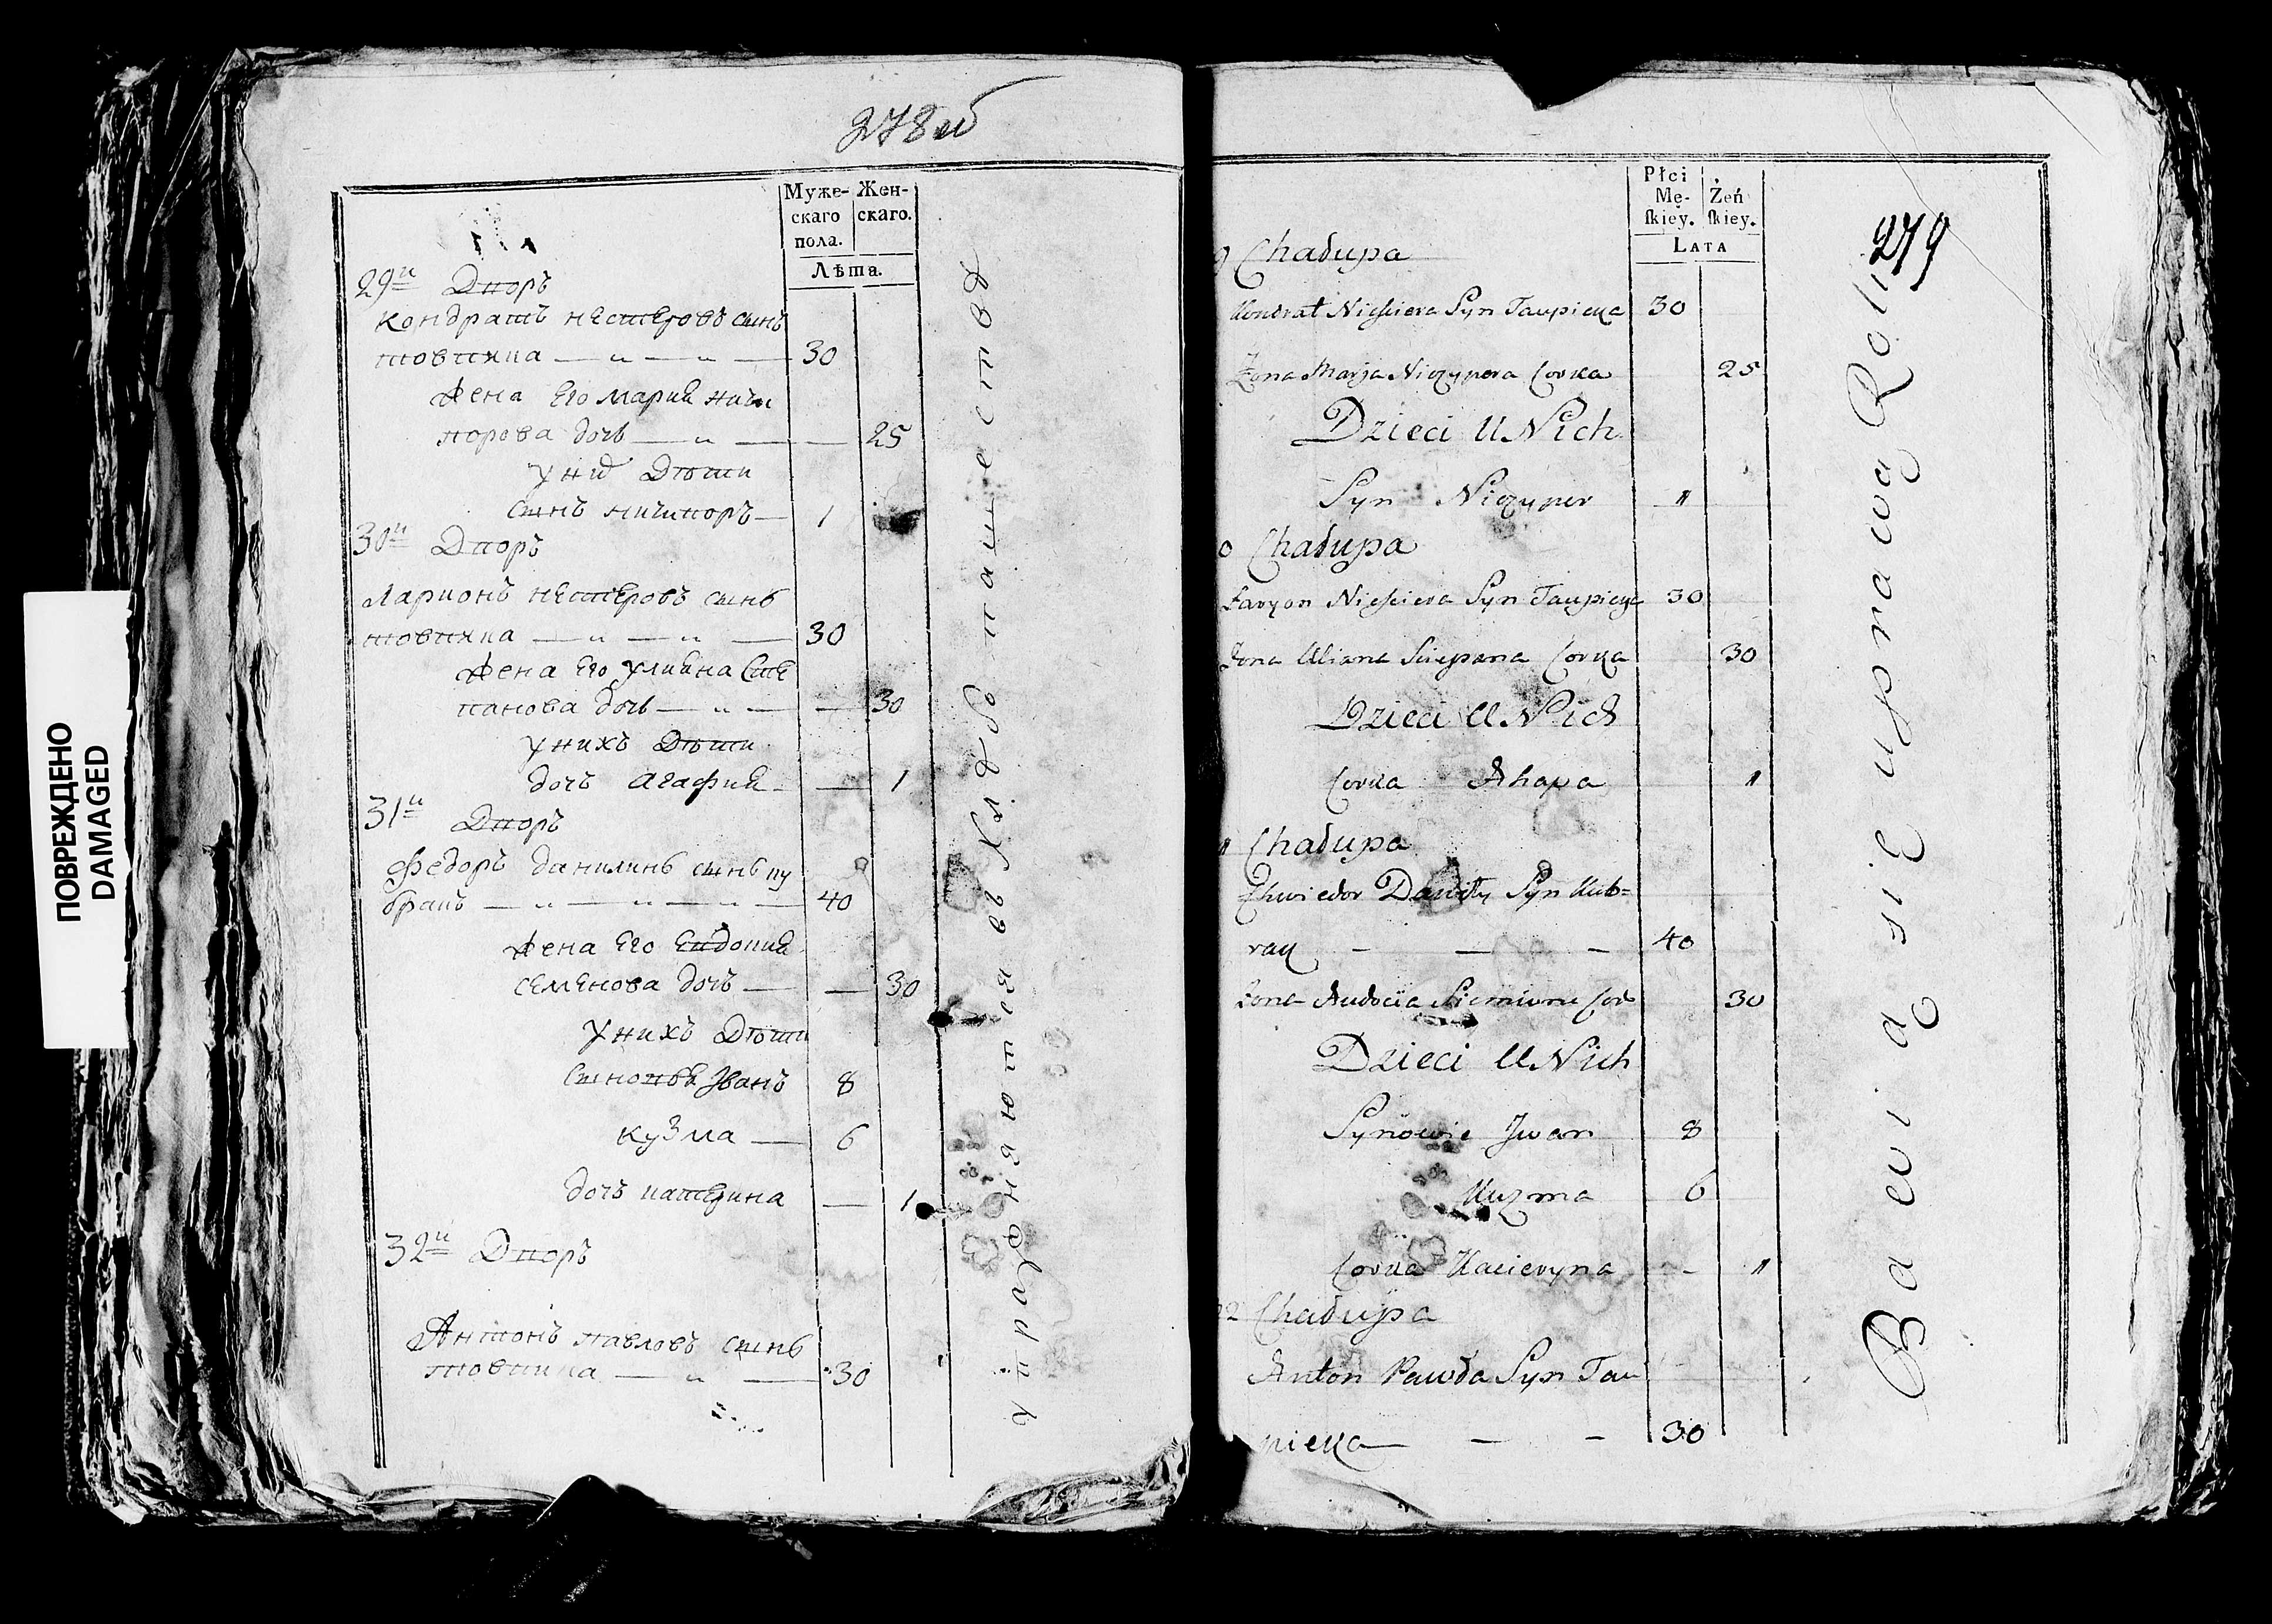 ПОВРЕЖДЕНО
DAMAGED
278 об
Муже-
скаго
пола.
Жен-
скаго.
Лѣта.
29й Дворъ
Кондратъ Нестеровъ сынъ
товпика — „ — „ — 30
жена Его Мария Ничи
порова дочь — „ — — 25
у них Дѣти
сынъ Ничипоръ — 1
30й Дворъ
Ларионъ Нестеровъ сынъ
товпика — „ — „ — 30
жена Его Улияна Сте
панова дочь — „ — — 30
у нихъ Дѣти
дочь Агафия — 1
31й Дворъ
Федоръ Данилинъ сынъ ку
бракъ — „ — „ — „ — 40
жена Его Евдокия
Семенова дочь — — 30
у нихъ Дѣти
сыновья Иванъ 8
Кузма — 6
дочь Катерина — 1
32й Дворъ
Антонъ Павловъ сынъ
товпика — „ — 30
упражняются въ хлѣбопашествѣ
Płci
Mę-
ſkiey.
Żeń
ſkiey.
LATA
279
9 Chałupa
Kondrat Nieściera Syn Taupieka 30
Żona Marja Niczypera Corka 25
Dzieci U Nich
Syn Niczyper 1
0 Chałupa
Laryon Nieściera Syn Taupieka 30
Żona Uliana Sciepana Corka 30
Dzieci U Nich
Corka Ahapa 1
1 Chałupa
Chwiedor Daniły Syn Kub=
rak — — — 40
Żona Audocia Siemiona Cor 30
Dzieci U Nich
Synowie Jwan 8
Kuzma 6
Corka Kacieryna - 1
32 Chałupa
Anton Pawła Syn Tau
pieka — — — 30
Bawią się uprawą Roli